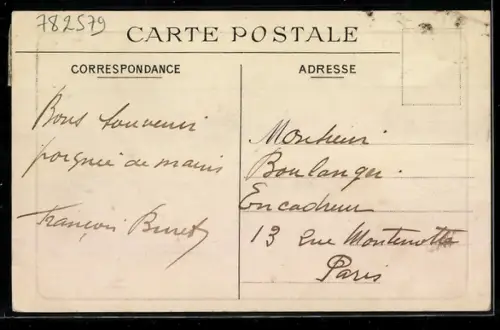 782579
CARTE POSTALE
CORRESPONDANCE
ADRESSE
Bons souvenir
poignée de mains
François
Monsieur
Boulanger.
Encadreur
13 Rue Montenotte
Paris